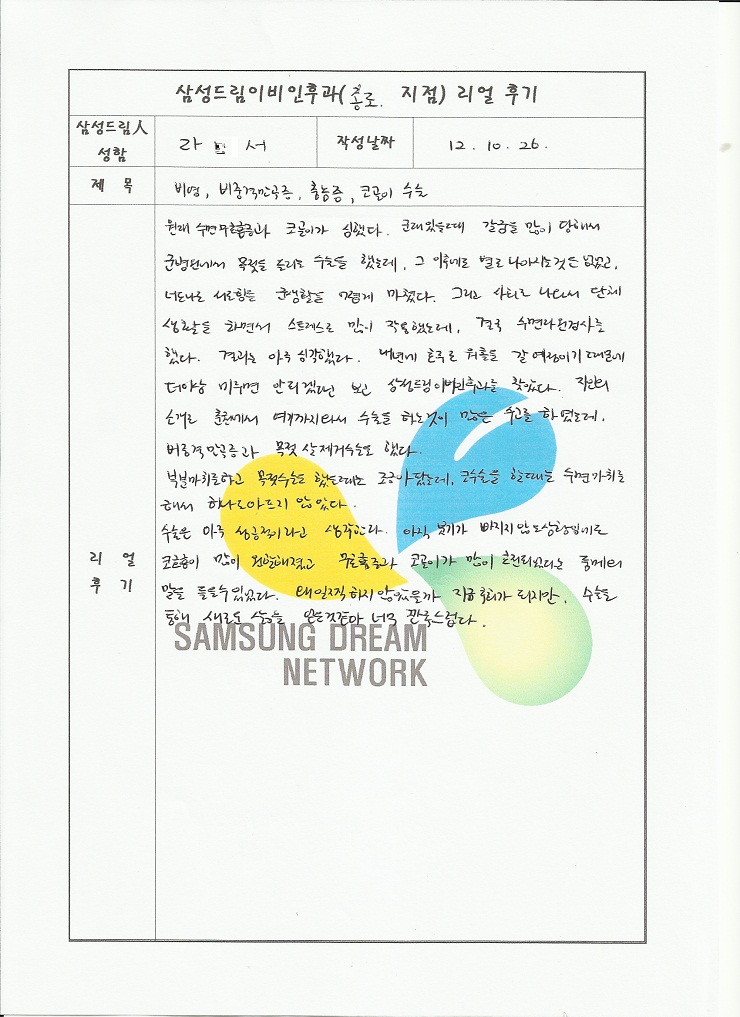 삼성드림이비인후과(종로. 지점) 리얼 후기
삼성드림人 성함
라 서
작성날짜
12. 10. 26.
제 목
비염, 비중격만곡증, 축농증, 코골이 수술
리 얼 후 기
원래 수면무호흡증과 코골이가 심했다. 군대있을때 갈굼을 많이 당해서
군병원에서 목젖을 돌리고 수술을 했는데, 그 이후에도 별로 나아지는 것은 없었고,
너도나도 서로힘든 군생활을 어렵게 마쳤다. 그리고 사회로 나와서 단체
생활을 하면서 스트레스로 많이 작용했는데, 결국 수면다원검사를
했다. 결과는 아주 심각했다. 내년에 호주로 워홀을 갈 예정이기 때문에
더이상 미루면 안되겠다 보고 삼성드림이비인후과를 찾았다. 지인의
소개로 춘천에서 여기까지와서 수술을 하는것이 많은 수고를 하였는데,
비중격만곡증과 목젖 살제거수술도 했다.
부분마취를하고 목젖수술도 했을때는 조금아팠는데, 코수술을 할때는 수면마취를
해서 하나도아프지 않았다.
수술은 아주 성공적이라고 생각한다. 아직 붓기가 빠지지않은상황임에도
코호흡이 많이 원활해졌고 무호흡증과 코골이가 많이 호전되었다는 룸메의
말을 들을수있었다. 왜일찍하지 않았을까 지금 후회가 되지만, 수술을
통해 새로운 삶을 얻은것같아 너무 만족스럽다.
SAMSUNG DREAM
NETWORK